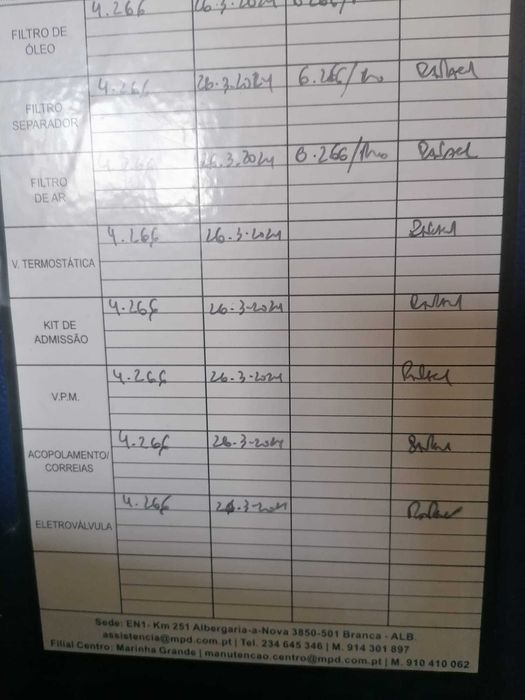 FILTRO DE ÓLEO 4.266
FILTRO SEPARADOR 4.266 26.3.2024 6.266/1no Rafael
FILTRO DE AR 4.266 26.3.2024 Rafael
V. TERMOSTÁTICA 4.266 26.3.2024 Rafael
KIT DE ADMISSÃO 4.266 26-3-2024 Rafael
V.P.M. 4.266 26-3-2024 Rafael
ACOPOLAMENTO/ CORREIAS 4.266 26-3-2024 Rafael
ELETROVÁLVULA 4.266 26.3-2024 Rafael
Sede: EN1- Km 251 Albergaria-a-Nova 3850-501 Branca - ALB.
assistencia@mpd.com.pt | Tel. 234 645 346 | M. 914 301 897
Filial Centro: Marinha Grande | manutencao.centro@mpd.com.pt | M. 910 410 062